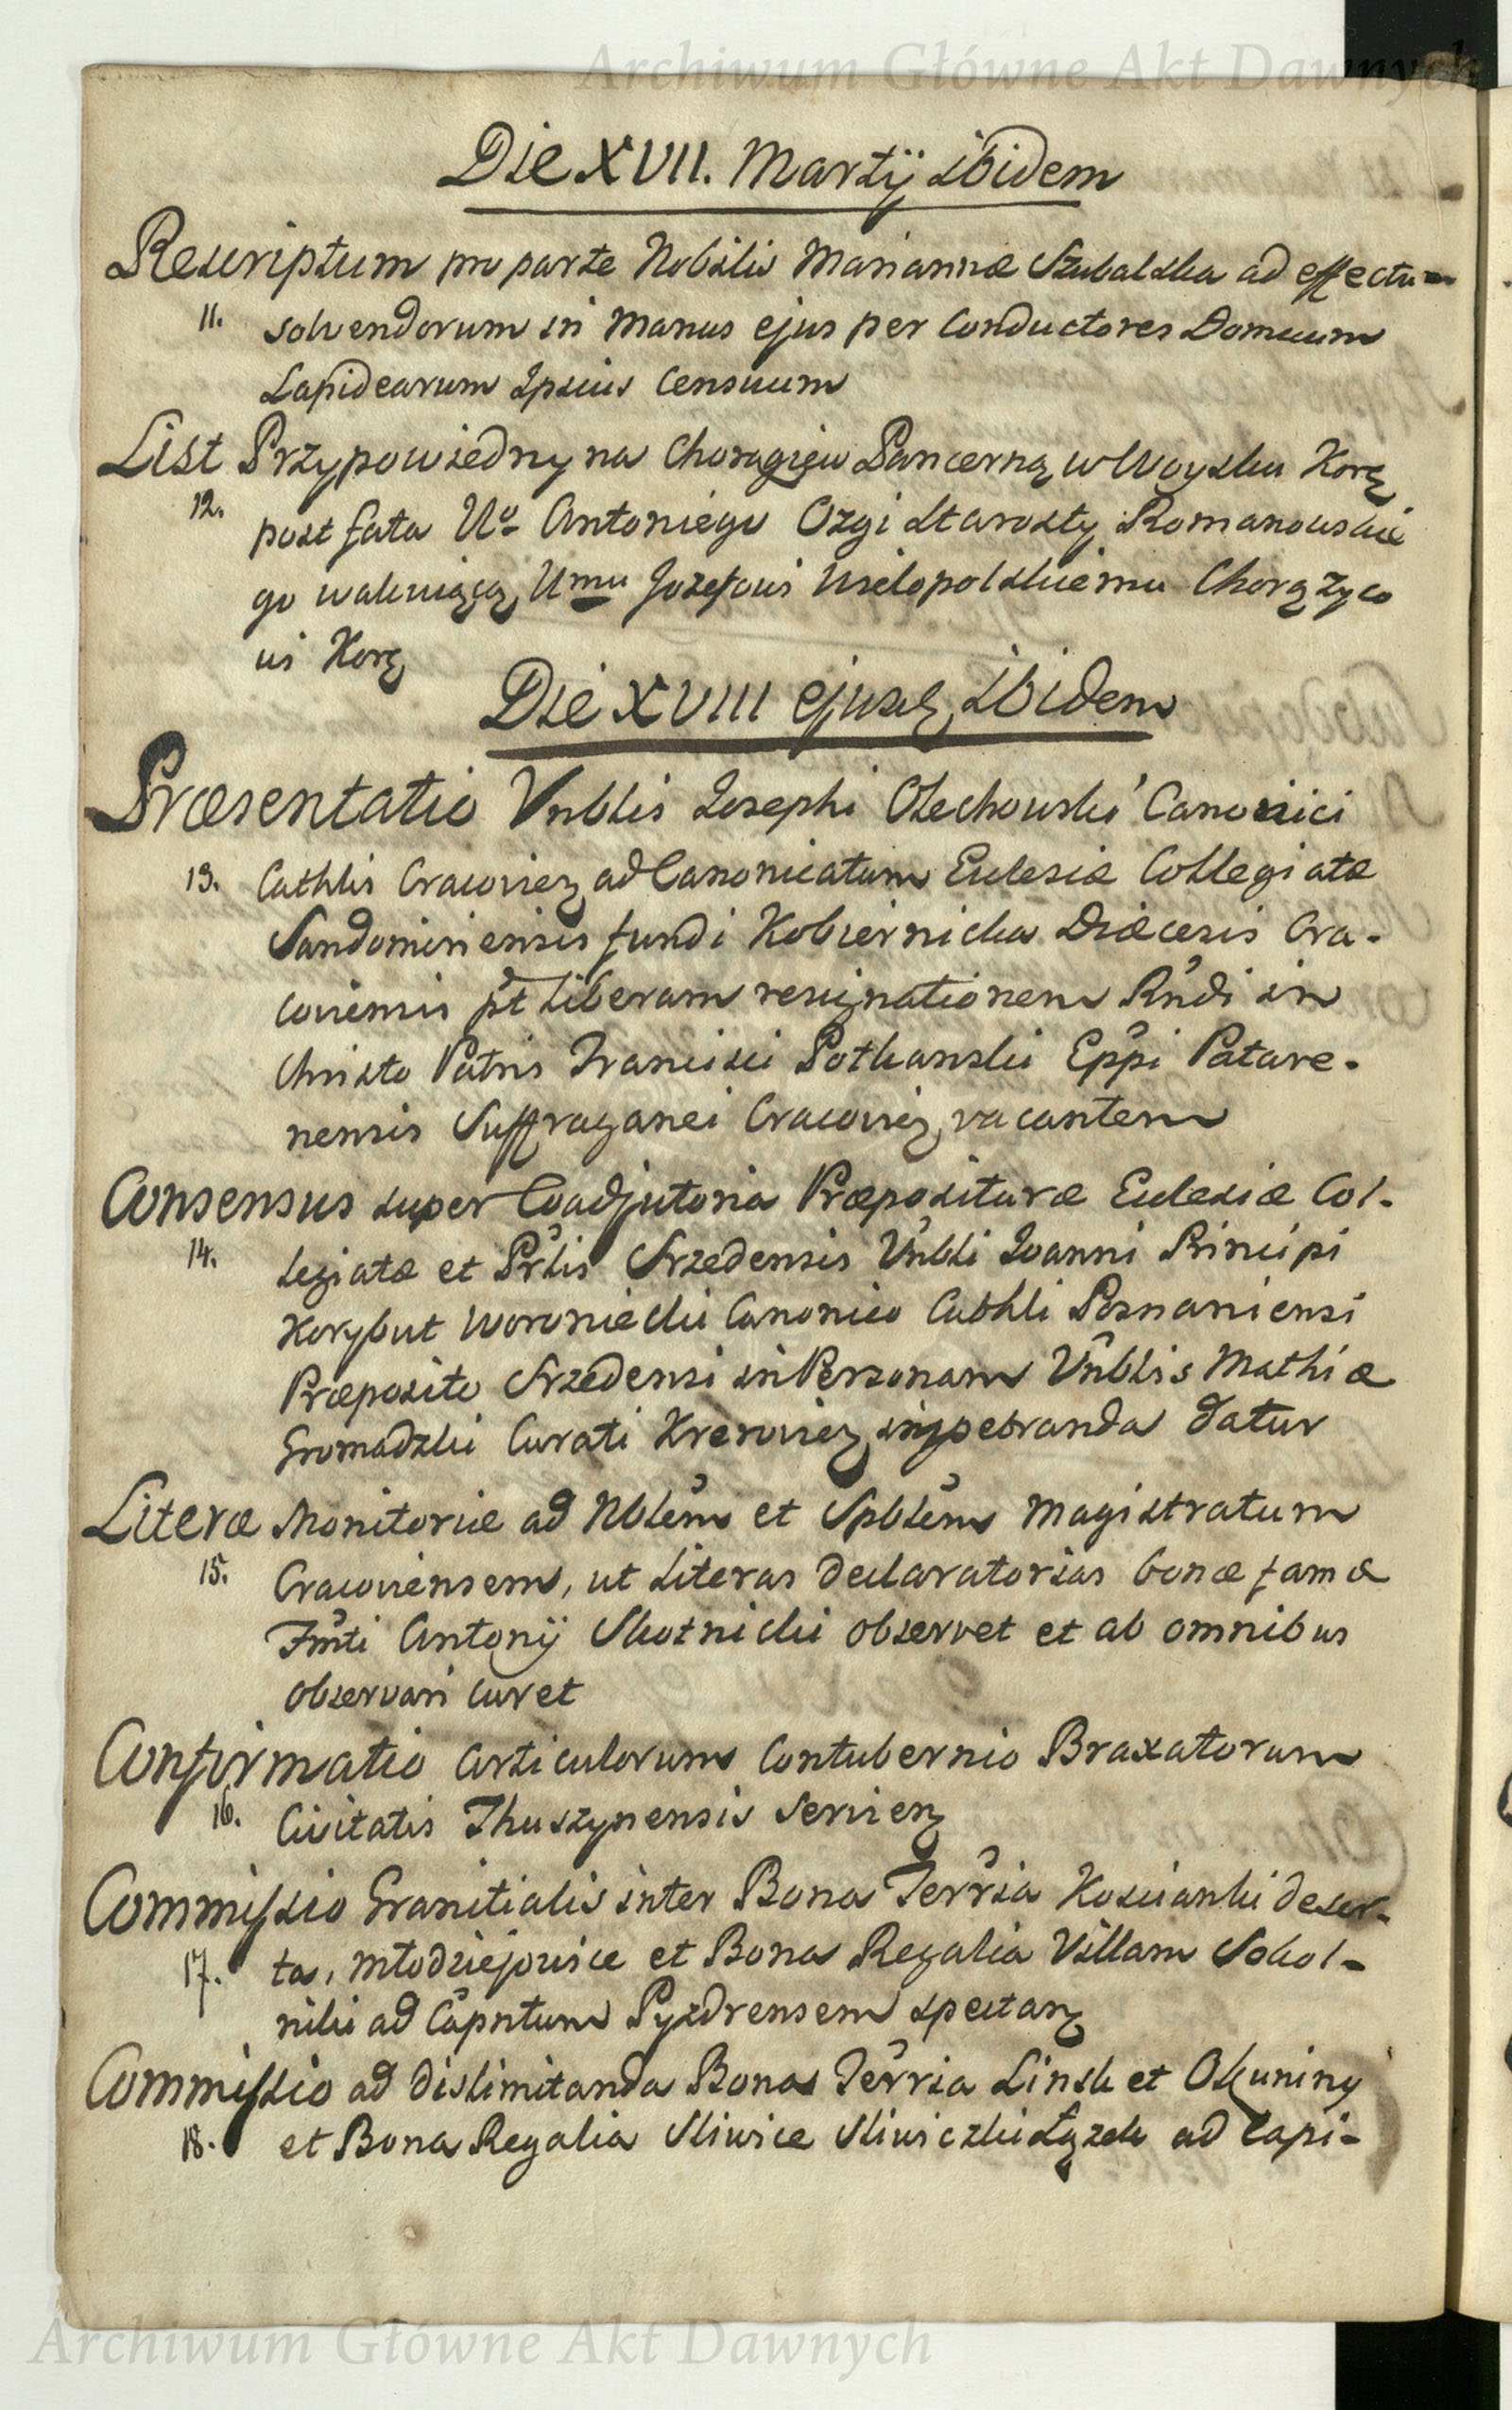 Archiwum Główne Akt Dawnych
Die XVII. Martij ibidem
Rescriptum pro parte Nobilis Mariannæ Szubalska ad effectum
11. solvendorum in manus ejus per Conductores Domuum
Lapidearum Ipsius Censuum
List Przypowiedny na Chorągiew Pancerną w Woysku Kor
12. post fata Uo Antoniego Ozgi Starosty Romanowskie
go wakuiącą Umu Jozefowi Wielopolskiemu Chorążyco
wi Kor
Die XVIII ejusd ibidem
Præsentatio Vnblis Josephi Olechowski Canonici
13. Cathlis Cracovien ad Canonicatum Eclesiæ Collegiatæ
Sandomiriensis fundi Kobiernicka Diæcesis Cra-
coviensis pt liberam resignationem Rndi in
Christo Patris Francisci Potkanski Eppi Patare-
nensis Suffraganei Cracovien vacantem
Consensus super Coadjutoria Præpositura Eclesiæ Col-
14. legiatæ et Prlis Srzedensis Vnbli Joanni Principi
Korybut Woroniecki Canonico Cathli Posnaniensi
Præposito Srzedensi in Personam Vnblis Mathiæ
Gromadzki Curati Krerovien impetranda datur
Literæ Monitoriæ ad Nblem et Spblem Magistratum
15. Cracoviensem, ut Literas declaratorias bonæ famæ
Fmti Antonij Skotnicki observet et ab omnibus
observari curet
Confirmatio Articulorum Contubernio Braxatorum
16. Civitatis Thuszynensis servien
Commissio Granitialis inter Bona Terria Kościanki deser-
17. ta, Młodziejowice et Bona Regalia Villam Sokol-
niki ad Capntum Pyzdrensem spectan
Commissio ad dislimitanda Bona Terria Linsk et Okuniny
18. et Bona Regalia Sliwice Sliwiczki Łązek ad Capi-
Archiwum Główne Akt Dawnych